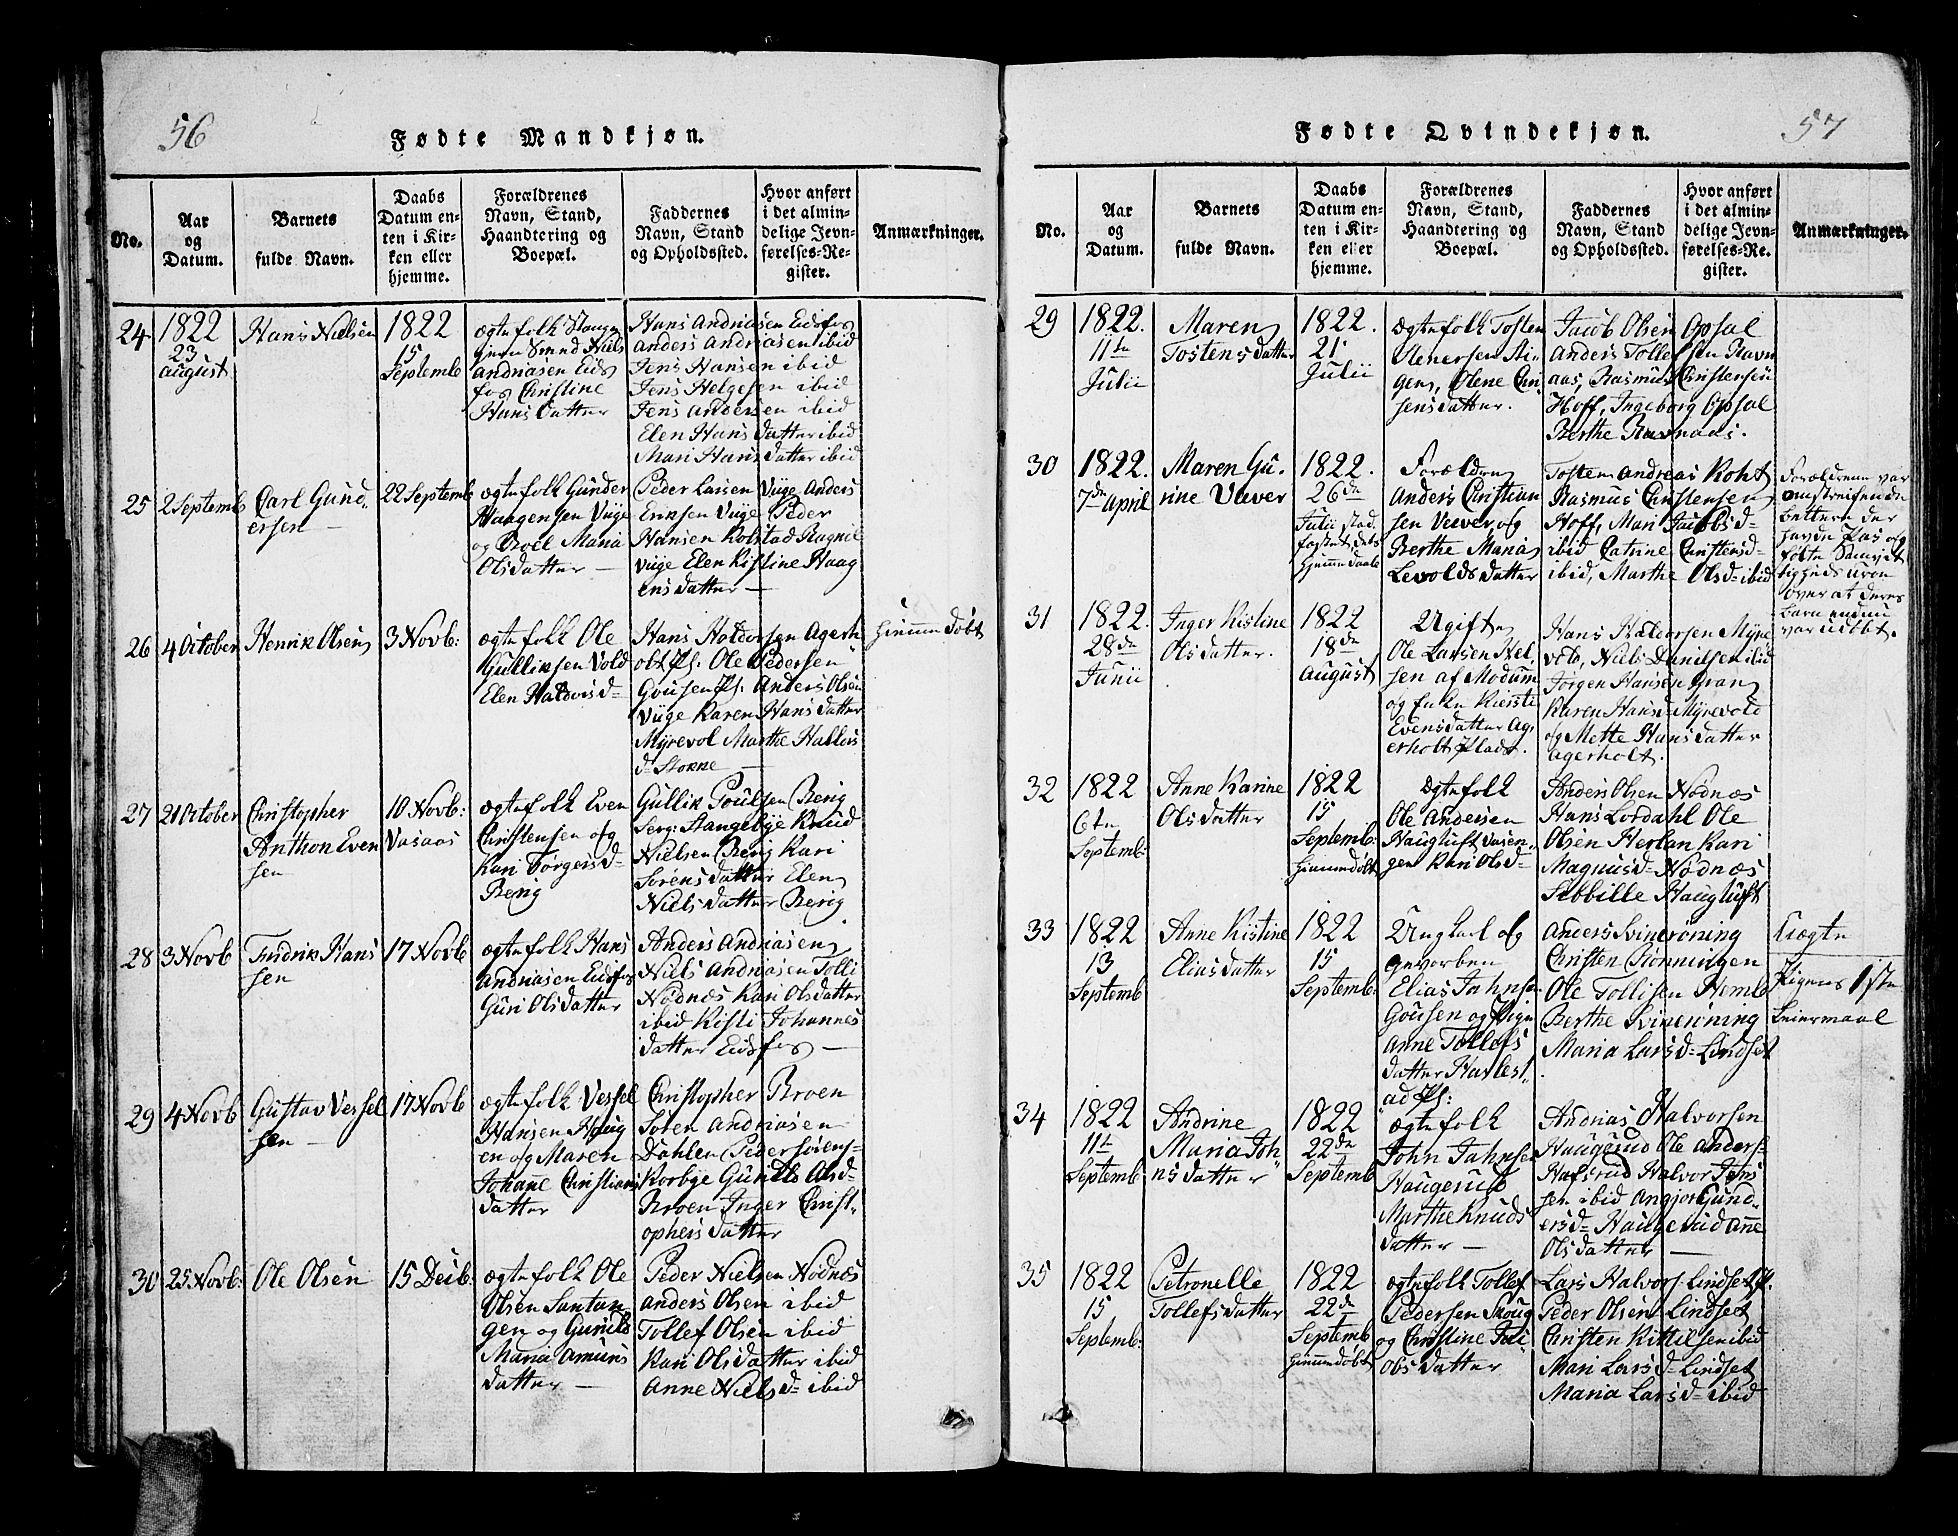 56
Fødte Mandkjøn.
No.
Aar
og
Datum.
Barnets
fulde Navn.
Daabs
Datum en-
ten i Kir-
ken eller
hjemme.
Forældrenes
Navn, Stand,
Haandtering og
Boepæl.
Faddernes
Navn, Stand
og Opholdssted.
Hvor anført
i det almin-
delige Jevn-
førelses-Re-
gister.
Anmærkninger.
24
1822
23
august
Hans Nielsen
1822
15
Septemb
ægtefolk
Smed Niels
andriasen Eids
fos Christine
Hans datter
Hans Andriasen Eidsfos
anders Andriasen ibid
Jens Hansen ibid
Jens Helgesen ibid
Jens Andersen ibid
Elen Hans datter ibid
Mari Hans datter ibid
25
2 Septemb
Carl Gund
ersen
22 Septemb
ægtefolk Gunder
Haagensen Viige
og Roel Maria
Olsdatter
Peder Larsen Viige Anders
Eriksen Viige Peder
Hansen Kolstad Ragnil
Viige Elen Kistine Haag
ensdatter
26
4 October
Henrik Olsen
3 Novb:
ægtefolk Ole
Gulliksen Vold
Elen Haldvisd=
Hans Haldorsen Agerh
olt Ps. Ole Pedersen
Gousen Ps. Anders Olsen
Viige Karen Hans datter
Myrevol Marthe Hallvs
d= Stokne
hiemme døbt
27
21 October
Christopher
Anthon Even
sen
10 Novb:
Vasaas
ægtefolk Even
Christensen og
Kari Torgersd=
Berig
Gullik Poulsen Berig
Serg: Stangebye Knud
Nielsen Berig Kari
Sørens datter Elen
Niels datter Berig
28
3 Novb
Fredrik Hans
sen
17 Novb
ægtefolk Hans
Andriasen Eidsfos
Guri Olsdatter
Anders Andriasen
Niels Andriasen Tolli
Nodnæs Kari Olsdatter
ibid Kisti Johannes
datter Eidsfos
29
4 Novb
Gustav Vessel
sen
17 Novb
ægtefolk Vessel
Hansen Houg
en og Maren
Johane Christians
datter
Christopher Broen
Søren Andriasen
Dahlen Peder Sørens-
Korbye Gunild Olsd=
Broen Inger Christ-
ophers datter
30
25 Novb:
Ole Olsen
15 Decb:
ægtefolk Ole
Olsen Santan
gen og Gunild
Maria Amuns
datter
Peder Nielsen Nodnæs
anders Olsen ibid
Tollef Olsen ibid
Kari Olsdatter ibid
Anne Nielsd= ibid
Fødte Qvindekjøn.
57
No.
Aar
og
Datum.
Barnets
fulde Navn.
Daabs
Datum en-
ten i Kir-
ken eller
hjemme.
Forældrenes
Navn, Stand,
Haandtering og
Boepæl.
Faddernes
Navn, Stand
og Opholdssted.
Hvor anført
i det almin-
delige Jevn-
førelses-Re-
gister.
Anmærkninger.
29
1822.
11te
Julii
Maren
Tostens datter
1822.
21
Julii
ægtefolk Tosten
gen, Olene Chri
sensdatter.
Jacob Olsen Opsal
Anders Tollefsen Ravn
aas, Rasmus Christensen
Hoff, Ingeborg Opsal
Berthe Ravnaas.
30
1822.
7de April
Maren Gu-
rine Vever
1822.
26de
Julii stad
fæstet dets
hiemme daab
Forældren
Anders Christian
sen Vever og
Berthe Maria
Levolds datter
Tosten Andreas Koht
Rasmus Christensen
Hoff, Mari Jacobsd=
ibid Catrine Christensd=
ibid, Marthe Olsd= ibid
Forældrene var
omstreifende
bettlere der
havde Pas og
over at deres
barn endnu
var udøbt.
31
1822.
28de
Junii
Inger Kistine
Ols datter.
1822
18de
August
Ugifte
Ole Larsen Hel-
sen af Modum
og Enke Kiersti
Evensdatter Ag-
erholt Plads.
Hans Haldorsen Myre
vold, Niels Danilsen ibid
Jørgen Hansen Gran
Karen Hansd= Myrevold
og Mette Hansdatter
Agerholt.
32
1822
6te
Septemb:
Anne Karine
Ols datter
1822
15
Septemb:
hiemmedøbt
ægtefolk
Ole Andersen
Haugluft Vasen-
gen Kari Olsd=
Anders Olsen Nodnæs
Hans Lordahl Ole
Olsen Herlan Kari
Magnusd= Nodnæs
Sebbille Haugluft
33
1822
13
Septemb
Anne Kistine
Elias datter
1822
15
Septemb:
Ungkarl og
gevorben
Elias Jahnsen
Gousen og Pige
Anne Tollefs
datter Harlest-
ad Ps:
Anders Svinerøning
Christen Rønningen
Ole Tollisen Hemb
Berthe Svinerøning
Maria Larsd= Lindset
Uægte
Pigens 1ste
Leiermaal
34
1822
11te
Septemb
Andrine
Maria Joh
nsdatter
1822
22de
Septemb
ægtefolk
John Jahnsen
Haugerud
Marthe Knuds
datter
Andrias Halvorsen
Haugerud Ole Anders=
Hafsrud Halvor Jens
sen ibid Angjor Gund
ersd= Haugerud Anne
Olsdatter
35
1822
15
Septemb:
Petronelle
Tollefsdatter
1822
22de
Septemb
hiemmedøbt
ægtefolk Tollef
Pedersen Skoug
og Christine Jac
obsdatter
Lars Halvors= Lindset Ps.
Peder Olsen Lindset
Christen Kittilsen ibid
Mari Larsd= Lindset
Maria Larsd= ibid